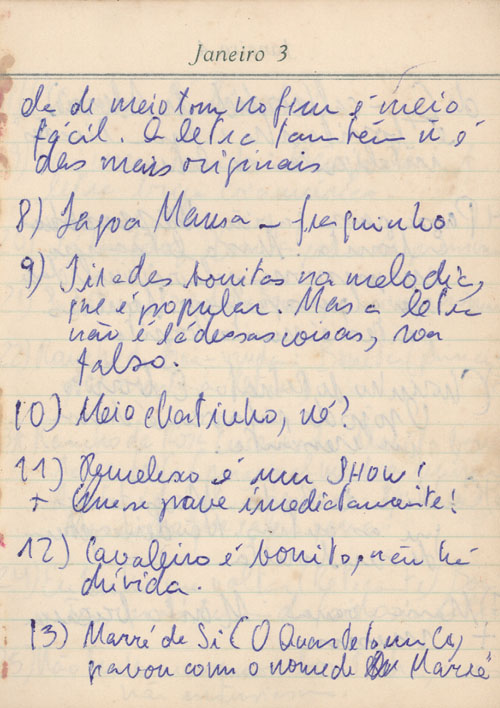 Janeiro 3
de de meio tom no fim é meio
fácil. A letra também ñ é
das mais originais
8) Lagoa Mansa – fraquinho
9) Tirades bonitas na melodia,
que é popular. Mas a letra
não é lá dessas coisas, soa
falso.
10) Meio chatinho, né?
11) Remelexo é um SHOW!
+ Que se grave imediatamente!
12) Cavaleiro é bonito, não há
dúvida.
13) Marré de Si (O Quarteto em Cy
gravou com o nome de "Marré"